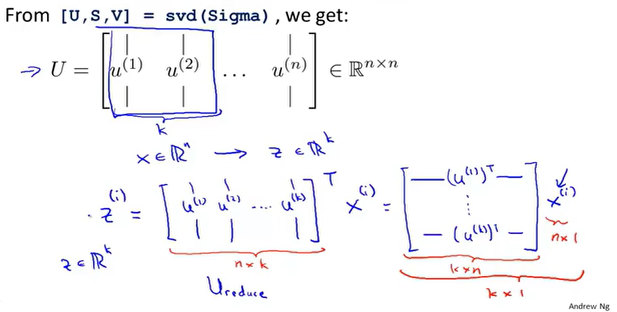 From [U,S,V] = svd(Sigma), we get:
→ U = [ u^(1) u^(2) … u^(n) ] ∈ ℝ^{n×n}
k
x ∈ ℝ^n → z ∈ ℝ^k
z^(i) = [ u^(1) u^(2) .... u^(k) ]^T x^(i) = [ — (u^(1))^T — ⋮ — (u^(k))^T — ] x^(i)
n×k k×n n×1
z ∈ ℝ^k Ureduce k×1
Andrew Ng